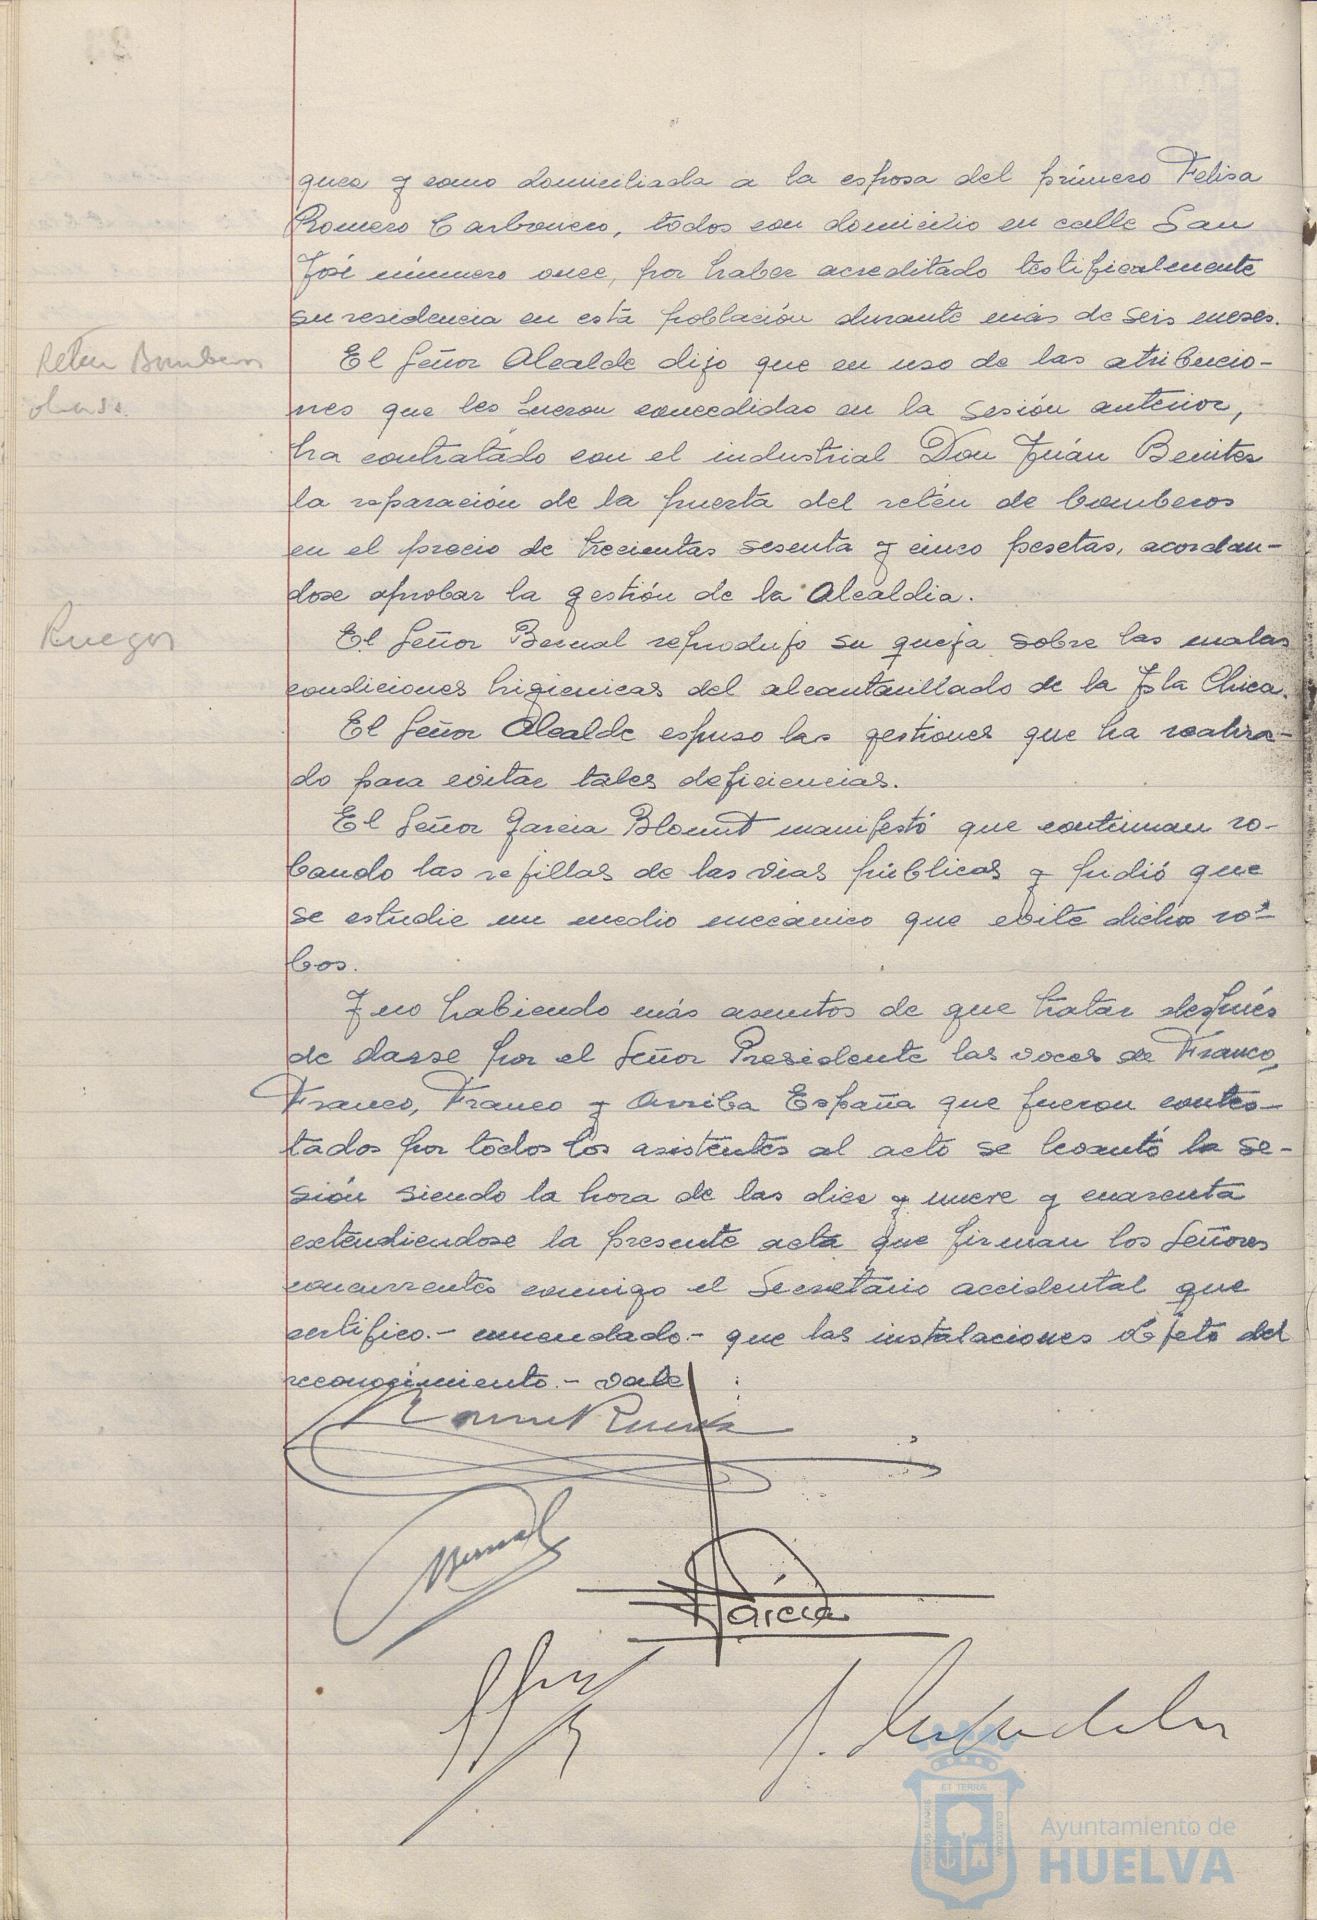 quez y como domiciliada a la esposa del primero Felisa
Romero Carbonero, todos con domicilio en calle San
José número once, por haber acreditado testificalmente
su residencia en esta población durante más de seis meses.
Reten Bomberos
obras.
El Señor Alcalde dijo que en uso de las atribucio-
nes que les fueron concedidas en la sesión anterior,
ha contratado con el industrial Don Juán Benitez
la reparación de la puerta del retén de bomberos
en el precio de trecientas sesenta y cinco pesetas, acordan-
dose aprobar la gestión de la Alcaldia.
Ruegos
El Señor Bernal reprodujo su queja sobre las malas
condiciones higienicas del alcantarillado de la Isla Chica.
El Señor Alcalde espuso las gestiones que ha realiza-
do para evitar tales deficiencias.
El Señor Garcia Blount manifestó que continuan ro-
bando las rejillas de las vias públicas y pidió que
se estudie un medio mecánico que evite dichos ro-
bos.
Y no habiendo más asuntos de que tratar después
de darse por el Señor Presidente las voces de Franco,
Franco, Franco y Arriba España que fueron contes-
tados por todos los asistentes al acto se levantó la se-
sión siendo la hora de las diez y nueve y cuarenta
extendiendose la presente acta que firman los Señores
concurrentes conmigo el Secretario accidental que
certifico.- enmendado.- que las instalaciones objeto del
reconocimiento.- vale
Bernal
García
ET TERRAE
PORTUS MARIS
CUSTODIA
Ayuntamiento de
HUELVA